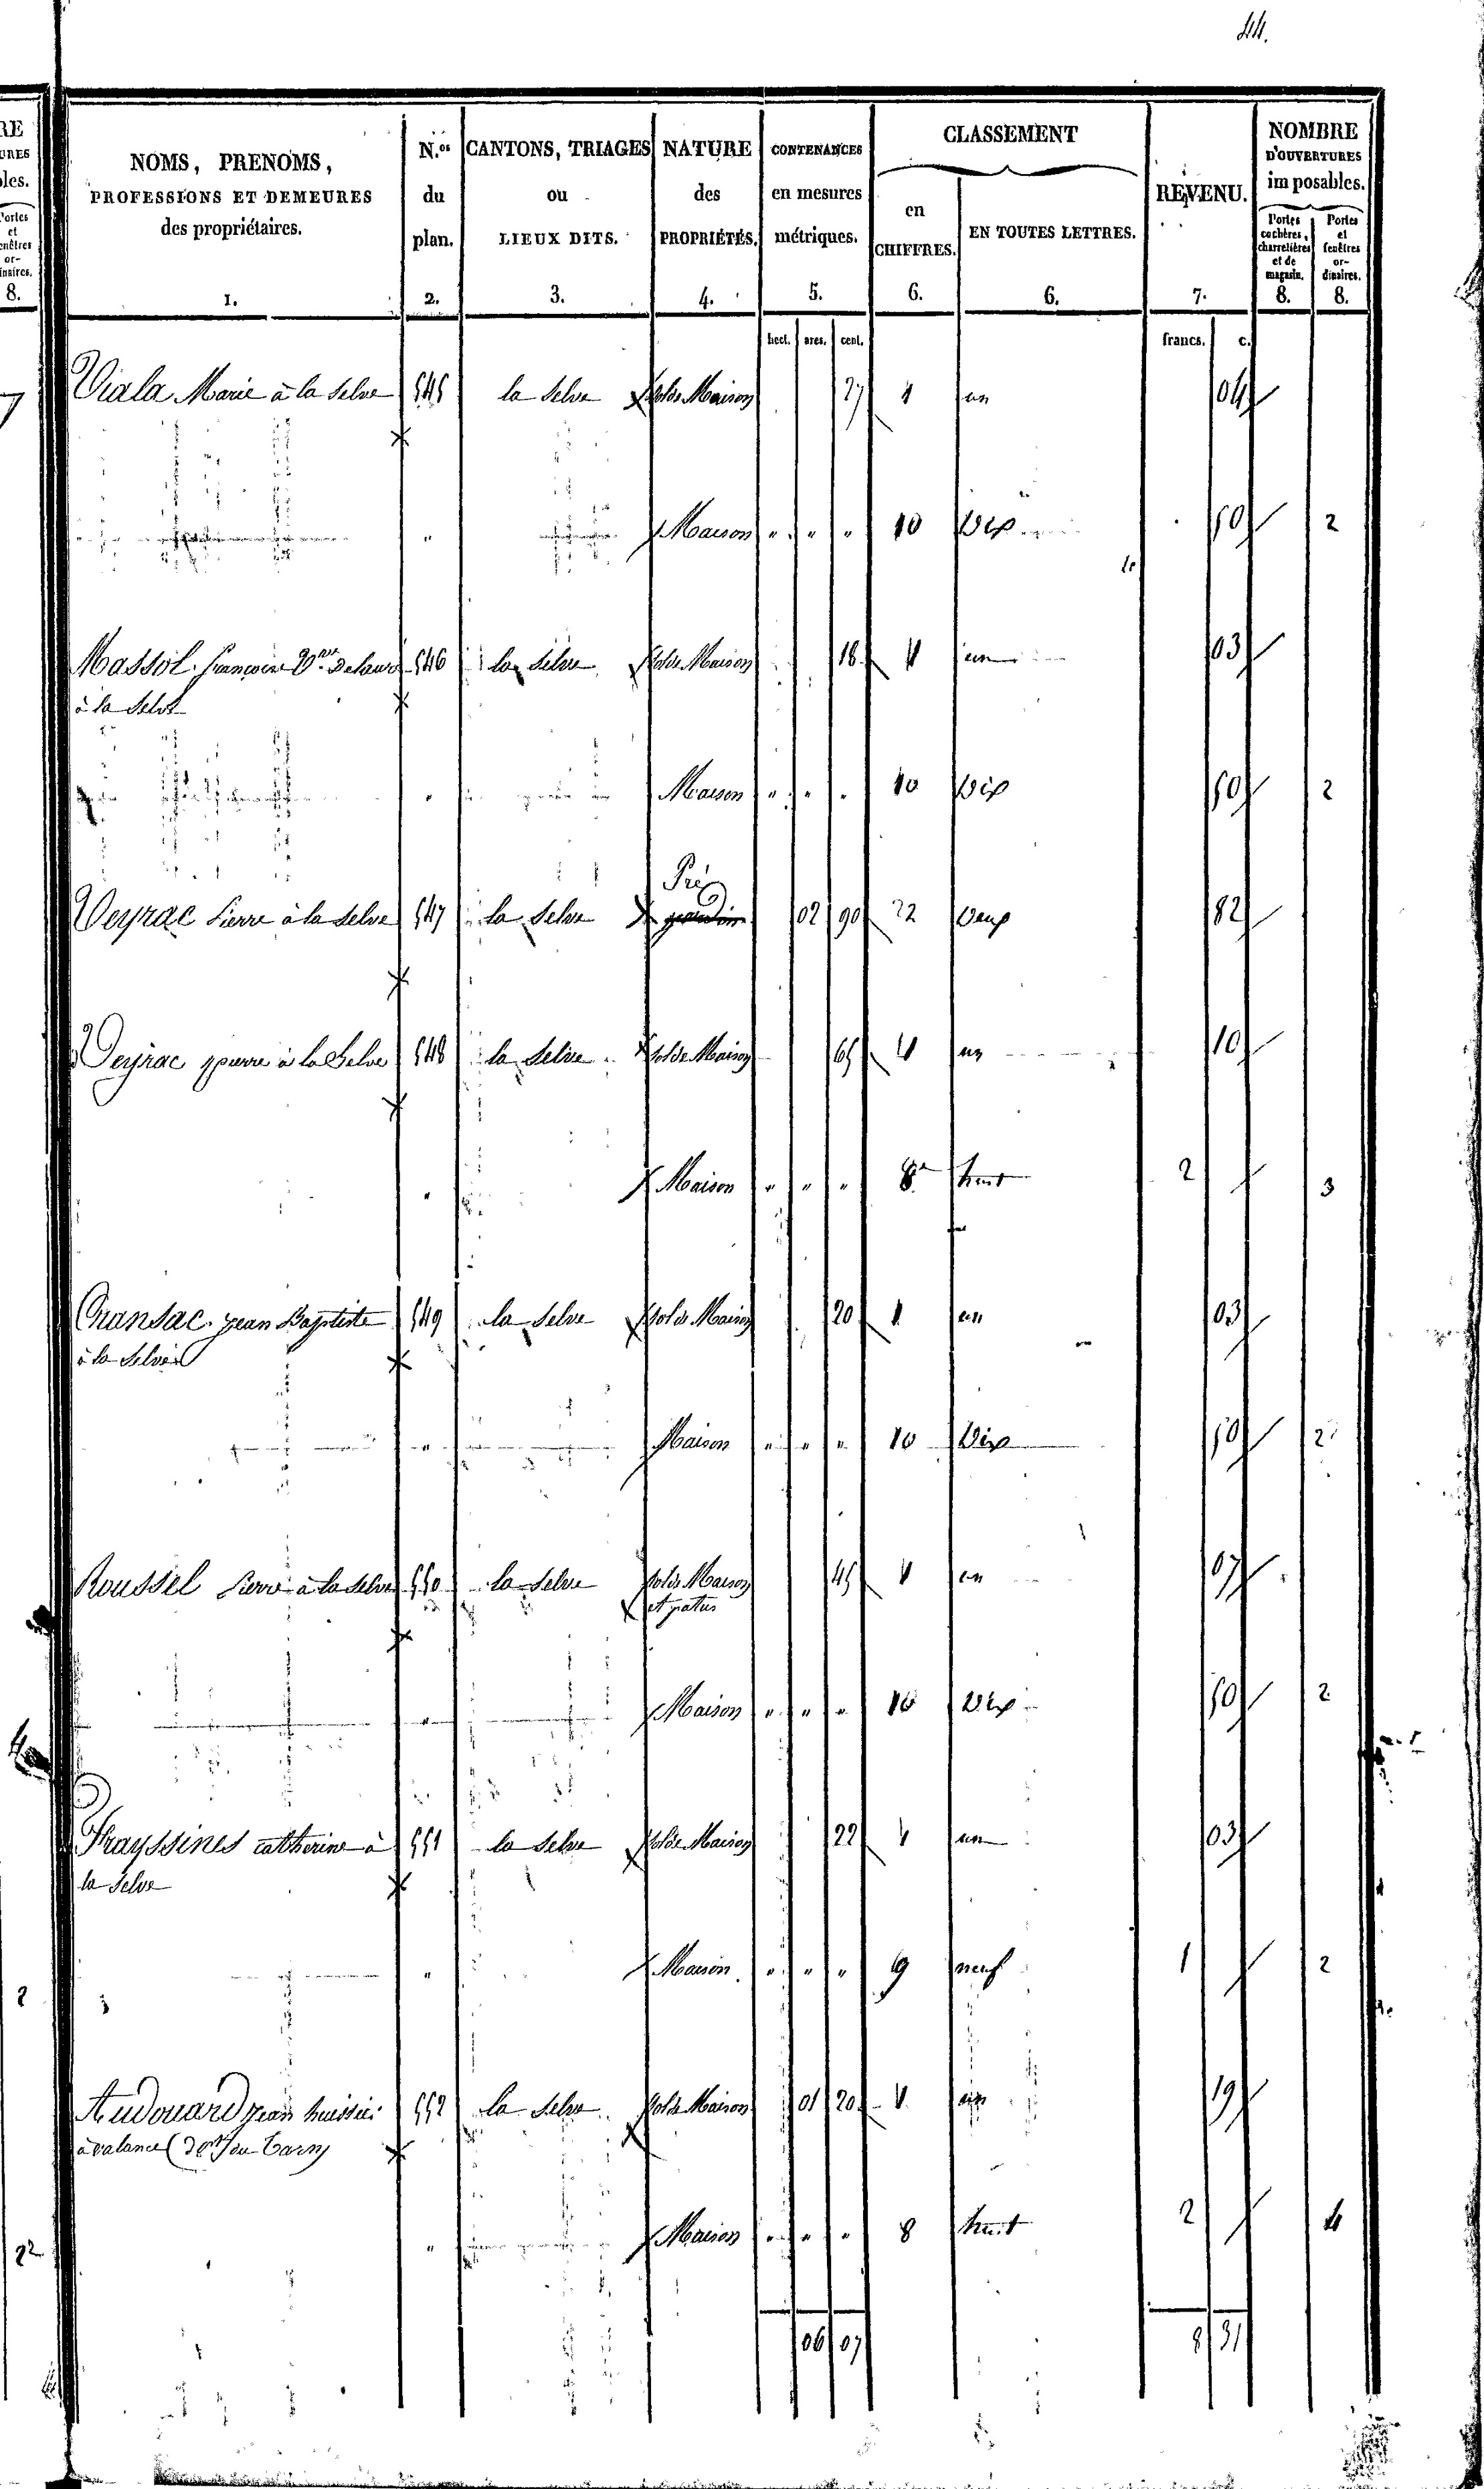 44.
NOMS, PRENOMS, PROFESSIONS ET DEMEURES des propriétaires. 1. | N.os du plan. 2. | CANTONS, TRIAGES ou LIEUX DITS. 3. | NATURE des PROPRIÉTÉS. 4. | CONTENANCES en mesures métriques. 5. | CLASSEMENT en CHIFFRES. 6. | EN TOUTES LETTRES. 6. | REVENU. 7. | NOMBRE D'OUVERTURES imposables. Portes cochères, charretières et de magasin. 8. | Portes et fenêtres ordinaires. 8.
hect. | ares. | cent. | francs. | c.
Viala Marie à la Selve | 545 | la Selve | sol de Maison | 27 | 1 | un | 04
" | Maison | " | " | " | 10 | Dix | 50 | 2
Massol françoise à la Selve | 546 | la Selve | sol de Maison | 18 | 1 | un | 03
" | Maison | " | " | " | 10 | Dix | 50 | 2
Veyrac Pierre à la Selve | 547 | la Selve | Pré | 02 | 90 | 2 | Deux | 82
Veyrac pierre à la Selve | 548 | la Selve | sol de Maison | 65 | 1 | un | 10
" | Maison | " | " | " | 8 | huit | 2 | 3
Cransac jean Baptiste à la Selve | 549 | la Selve | sol de Maison | 20 | 1 | un | 03
" | Maison | " | " | " | 10 | Dix | 50 | 2
Roussel Pierre à la Selve | 550 | la Selve | sol de Maison et patus | 45 | 1 | un | 07
" | Maison | " | " | " | 10 | Dix | 50 | 2
Frayssines catherine à la Selve | 551 | la Selve | sol de Maison | 22 | 1 | un | 03
" | Maison | " | " | " | 9 | neuf | 1 | 2
Audouard jean huissier à valance (Dt du Tarn) | 552 | la Selve | sol de Maison | 01 | 20 | 1 | un | 19
" | Maison | " | " | " | 8 | huit | 2 | 4
06 | 07 | 8 | 31